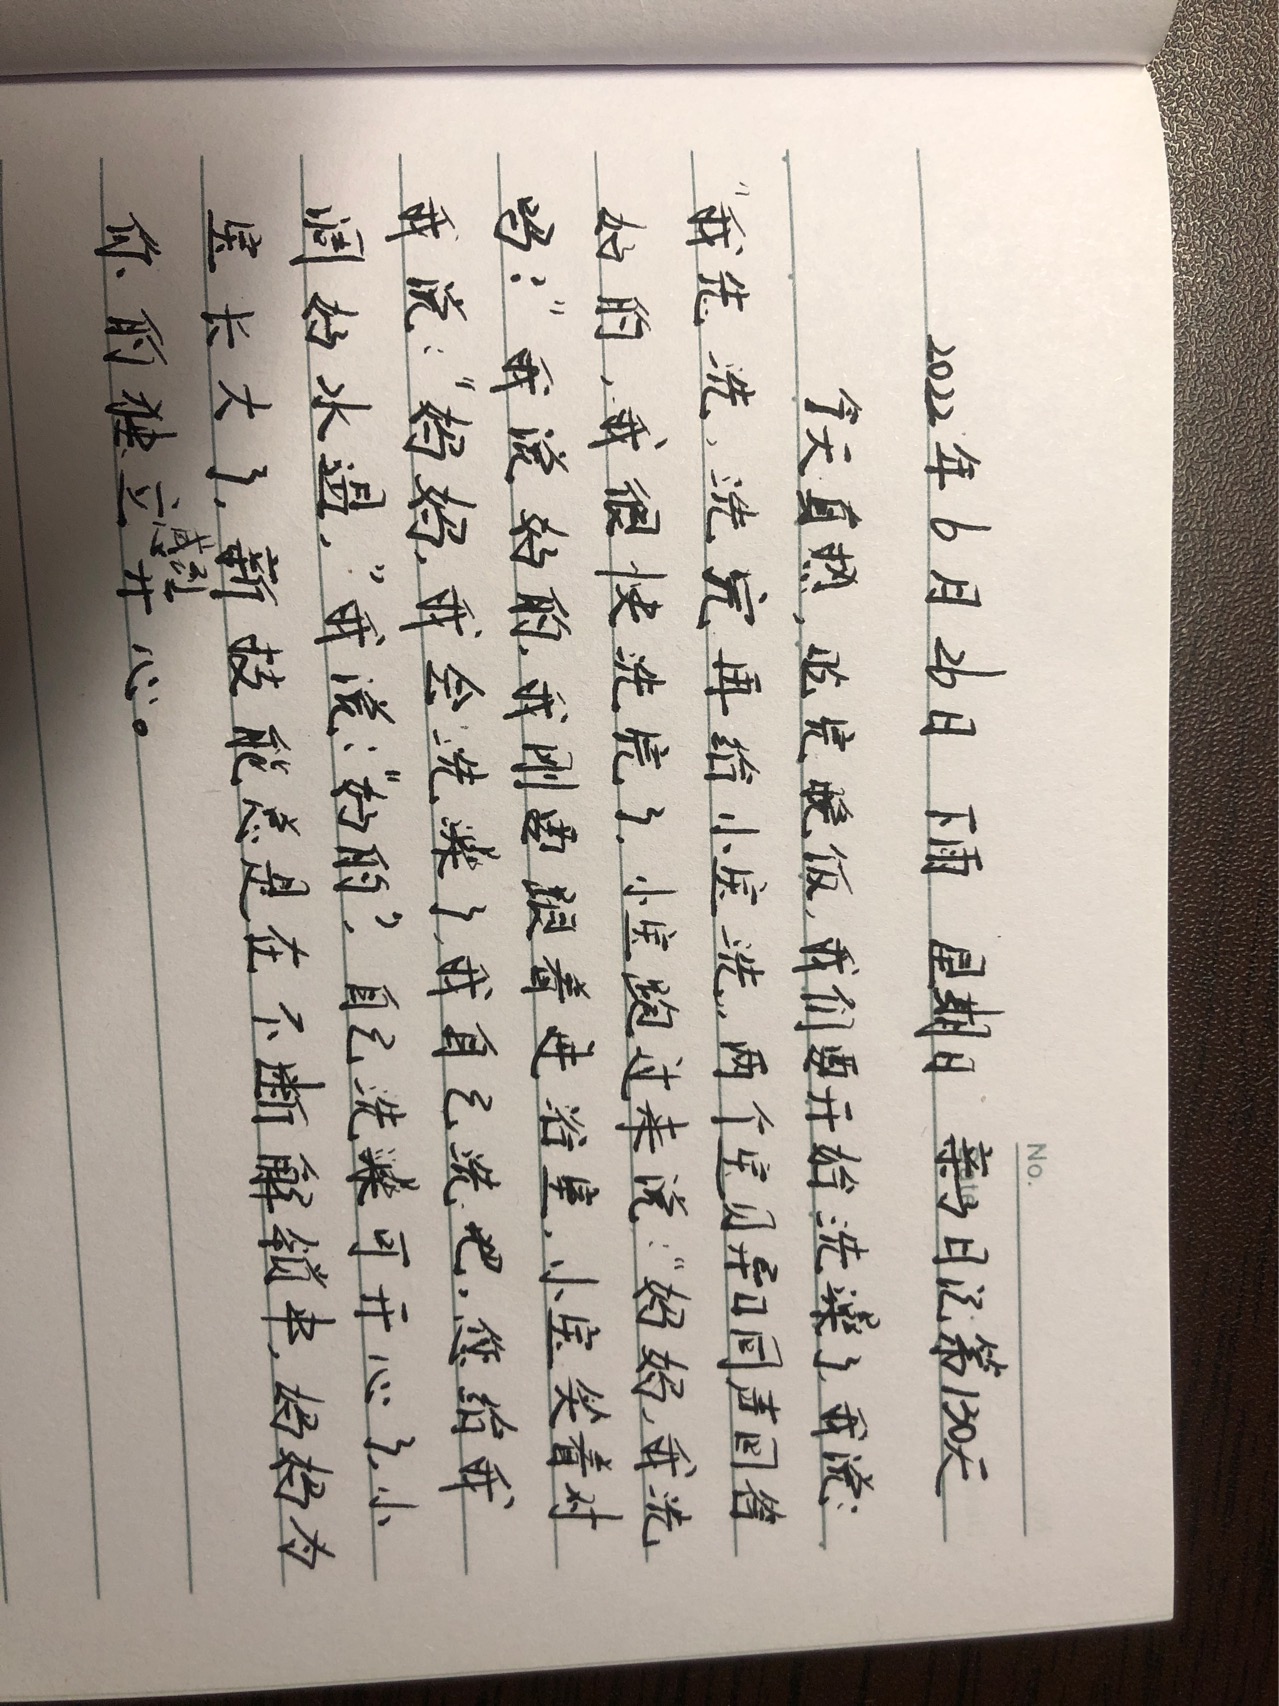 No.
Date
2022年6月26日 下雨 星期日 亲子日记第130天
今天真热，吃完晚饭，我们要开始洗澡了，我说：
“我先洗，洗完再给小宝洗”，两个宝贝异口同声回答
好的，我很快洗完了，小宝跑过来说：“妈妈，我洗
吗？”我说好的，我刚要跟着进浴室，小宝笑着对
我说：“妈妈，我会洗澡了，我自己洗吧，您给我
调好水温，”我说：“好的”，自己洗澡可开心了，小
宝长大了，新技能总是在不断解锁中，妈妈为
你的独立感到开心。